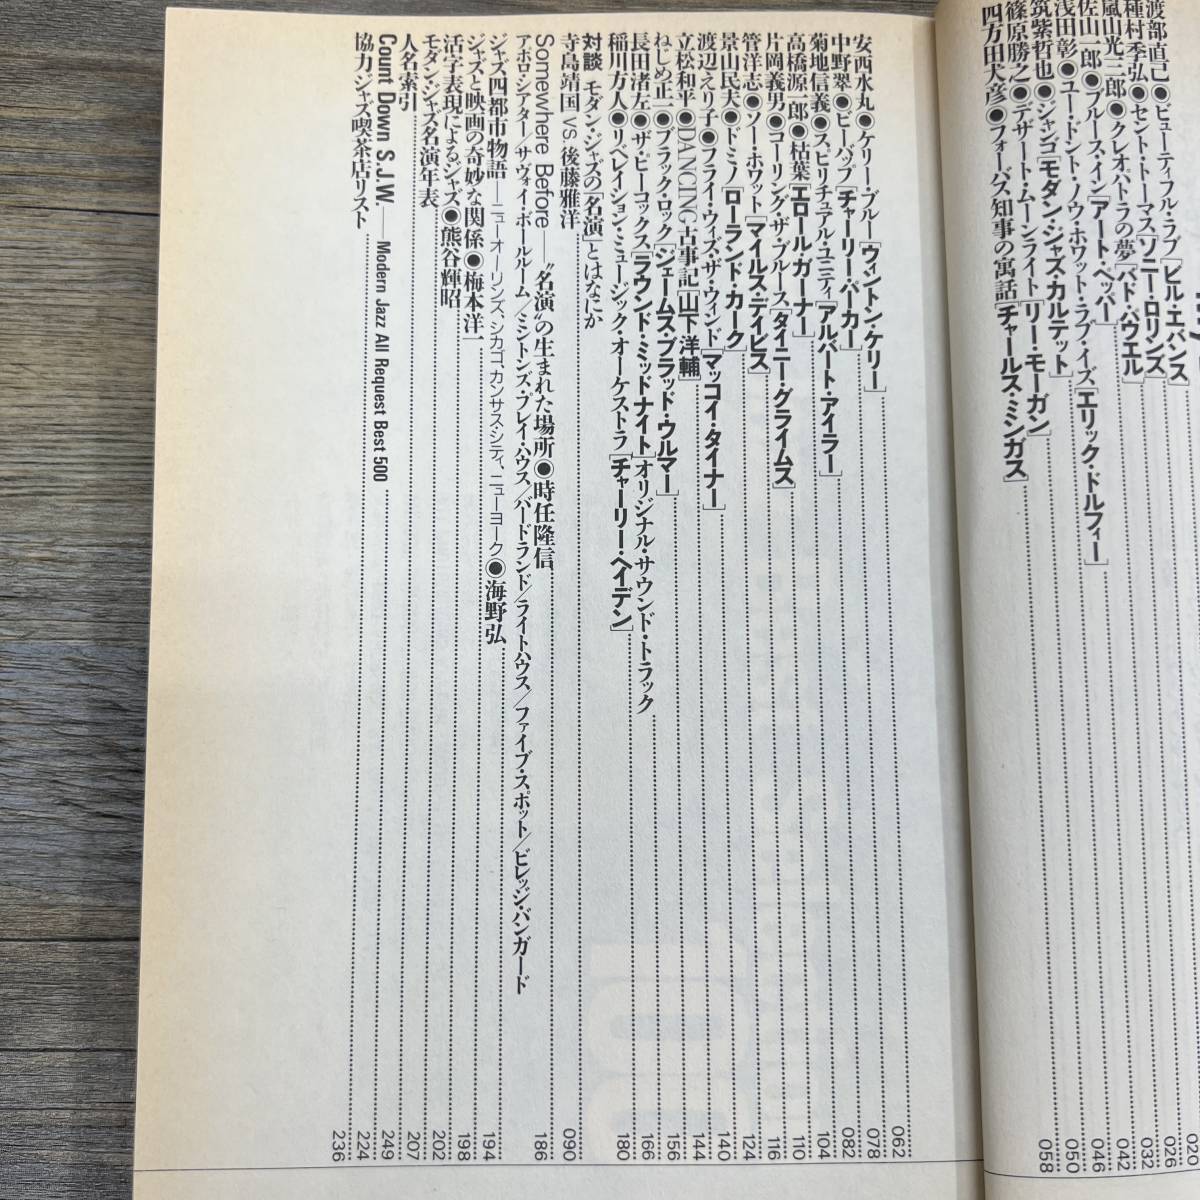 渡部直己●ビューティフル・ラブ[ビル・エバンス]
種村季弘●セント・トーマス[ソニー・ロリンズ]……020
嵐山光三郎●クレオパトラの夢[バド・パウエル]……026
佐山一郎●ブルース・イン[アート・ペッパー]……032
浅田彰●ユー・ドント・ノウ・ホワット・ラブ・イズ[エリック・ドルフィー]……042
筑紫哲也●ジャンゴ[モダン・ジャズ・カルテット]……046
篠原勝之●デザート・ムーンライト[リー・モーガン]……050
四方田犬彦●フォーバス知事の寓話[チャールス・ミンガス]……058
安西水丸●ケリー・ブルー[ウィントン・ケリー]……062
中野翠●ビーバップ[チャーリー・パーカー]……078
菊地信義●スピリチュアル・ユニティ[アルバート・アイラー]……082
高橋源一郎●枯葉[エロール・ガーナー]……104
片岡義男●コーリング・ザ・ブルース[タイニー・グライムス]……110
管洋志●ソー・ホワット[マイルス・デイビス]……116
景山民夫●ドミノ[ローランド・カーク]……124
渡辺えり子●フライ・ウィズ・ザ・ウィンド[マッコイ・タイナー]……140
立松和平●DANCING古事記[山下洋輔]……144
ねじめ正一●ブラック・ロック[ジェームス・ブラッド・ウルマー]……156
長田渚左●ザ・ピーコックス[ラウンド・ミッドナイト]オリジナル・サウンド・トラック……166
稲川方人●リベレイション・ミュージック・オーケストラ[チャーリー・ヘイデン]……180
対談 モダン・ジャズの[名演]とはなにか
寺島靖国 vs. 後藤雅洋……090
Somewhere Before——“名演”の生まれた場所●時任隆信……186
アポロ・シアター/サヴォイ・ボールルーム/ミントンズ・プレイ・ハウス/バードランド/ライトハウス/ファイブ・スポット/ビレッジ・バンガード
ジャズ四都市物語——ニューオーリンズ、シカゴ、カンサス・シティ、ニューヨーク●海野弘……194
ジャズと映画の奇妙な関係●梅本洋一……198
活字表現によるジャズ●熊谷輝昭……202
モダン・ジャズ名演年表……207
人名索引……249
Count Down S.J.W.——Modern Jazz All Request Best 500……224
協力ジャズ喫茶店リスト……236